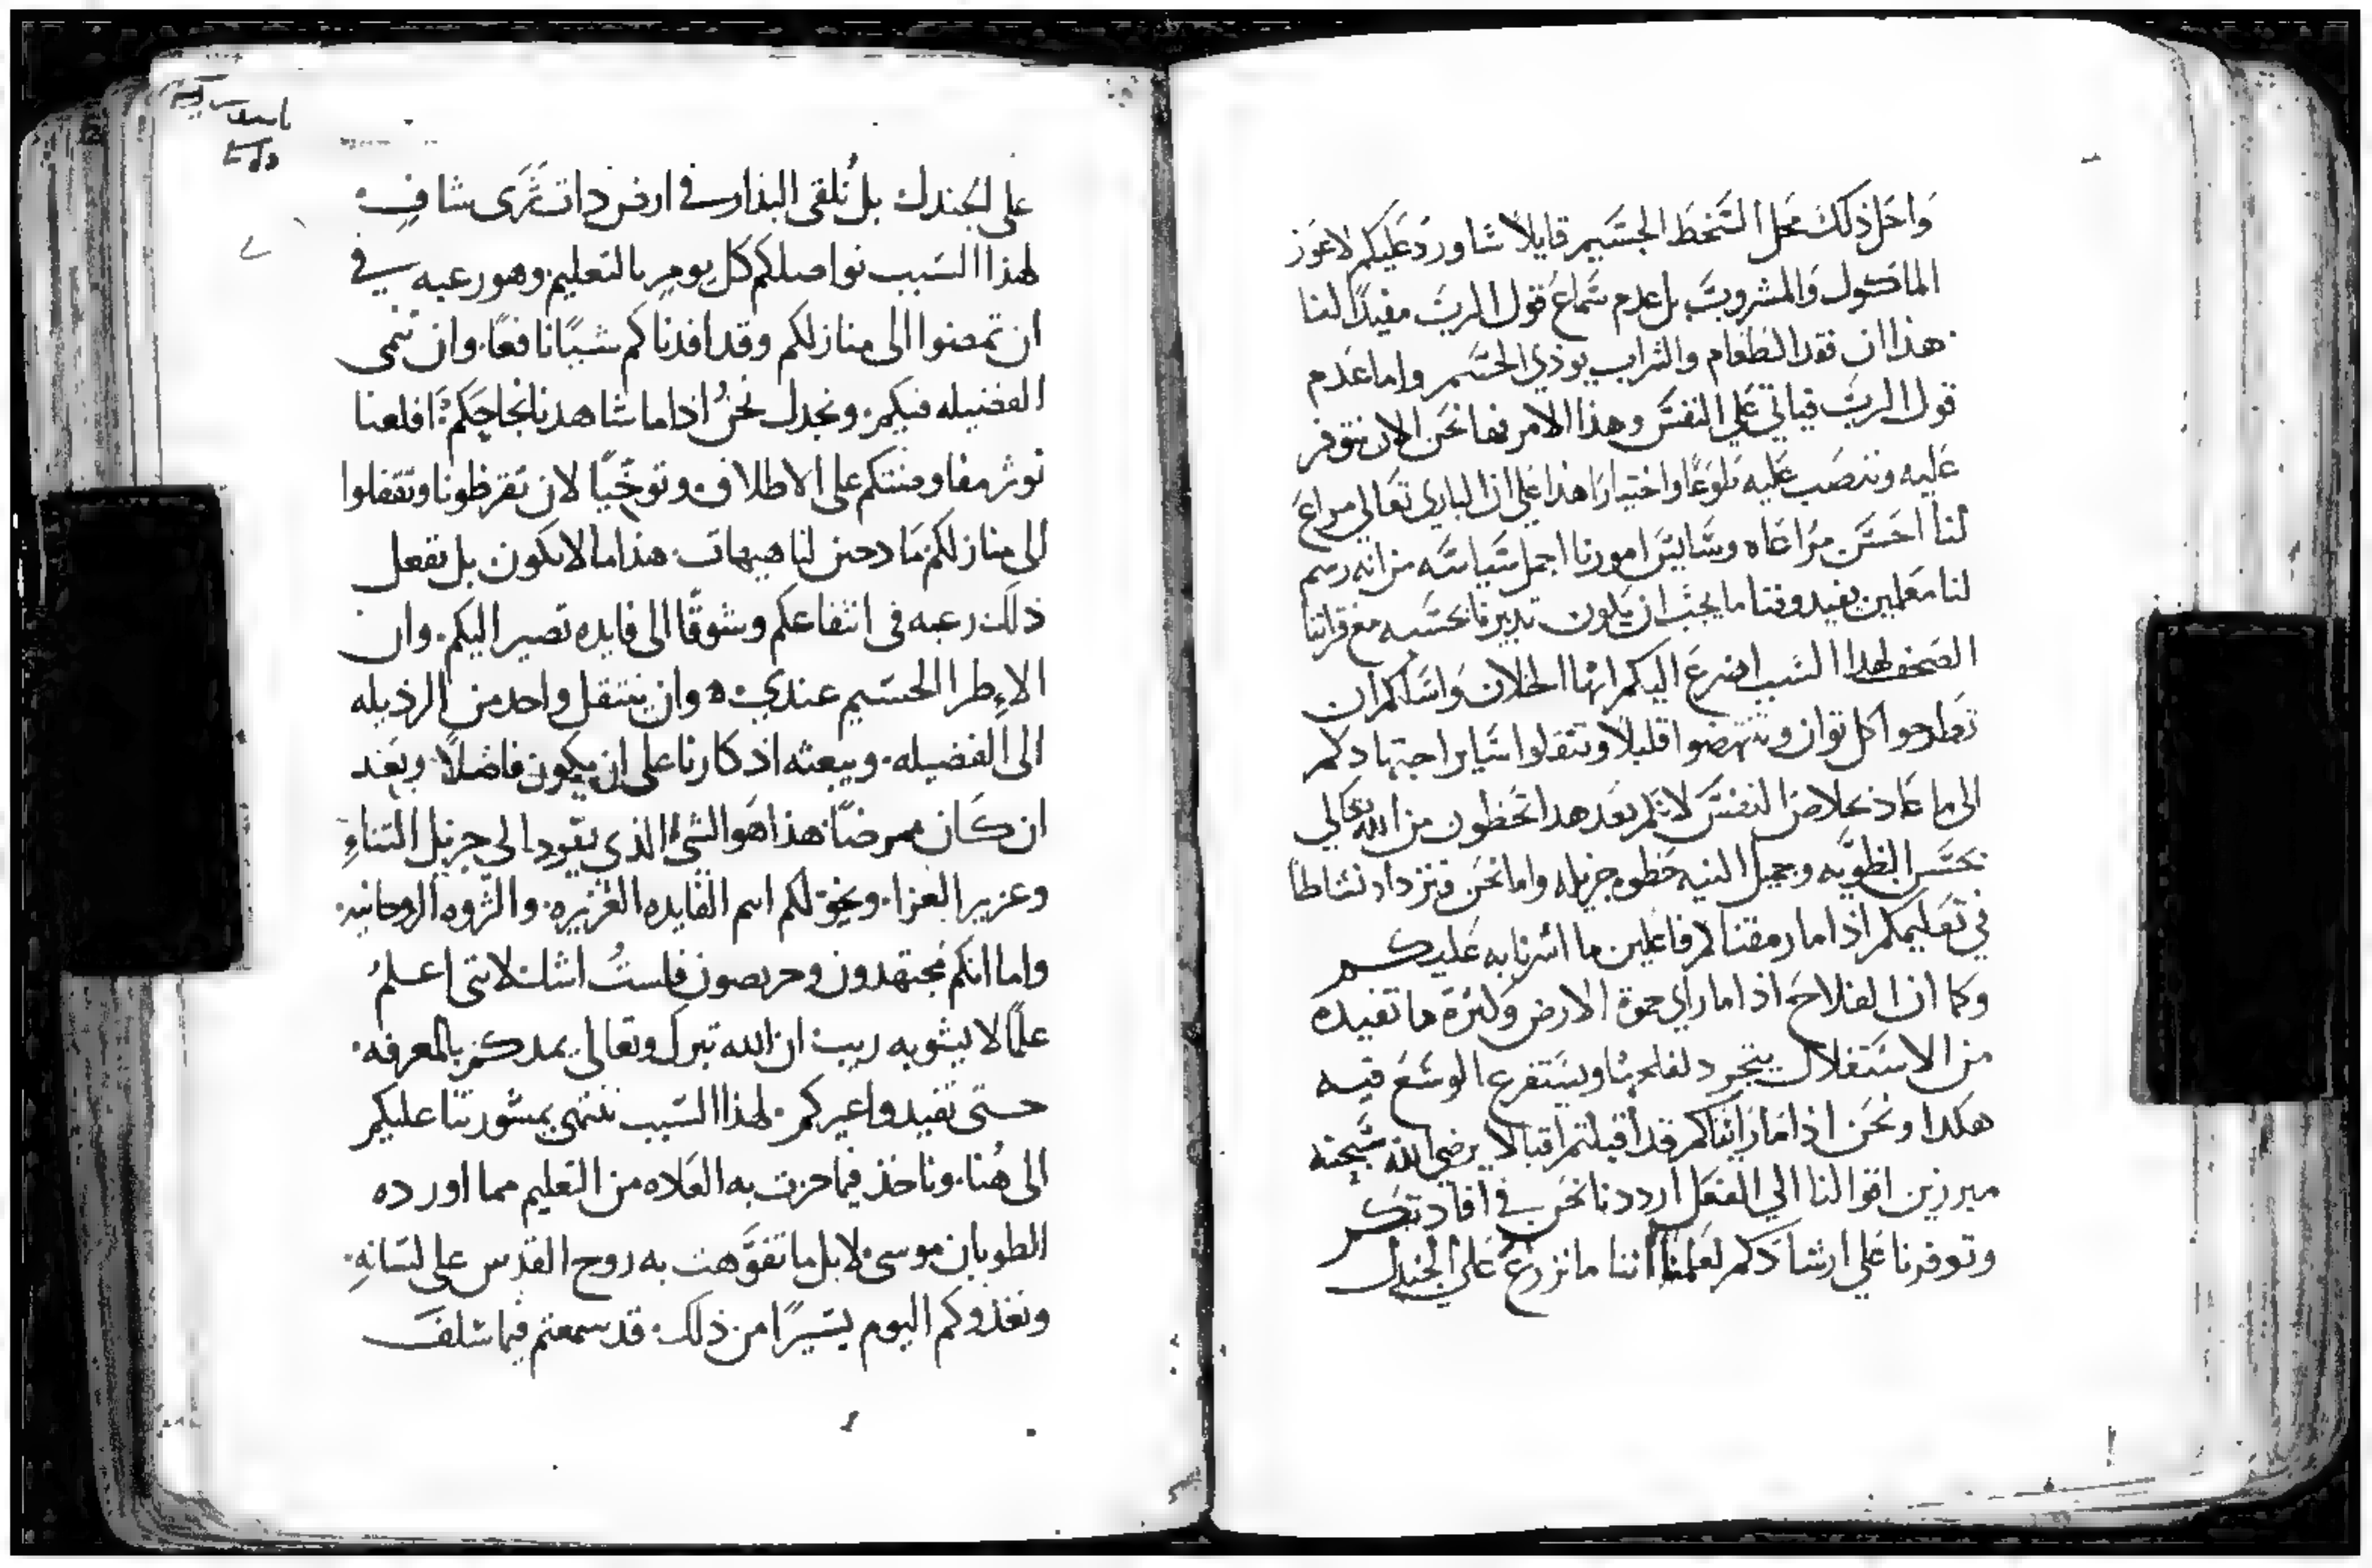 واحل ذلك محل السَّخط الجسَيم قايلاً شاورد عليكم لاعوز
الماكول والمشروب بل عدم سَماع قول الرب مفيداً لنا
هذا ان فقد الطعام والشراب يوذي الجسَم واما عدم
قول الرب فياتي على النفسَ وهذا الامر فها نحن الان نتوفر
عليه وننصب عليه طوعًا واختيارًا هذا على ان الباري تعالى مراع
لنا احسَن مراعاه وسَايسَ امورنا اجمل سَياسَه من انه رسم
لنا معلمين يفيدوننا ما يجب ان يكون تدبيرنا بحسَبه مع قراتنا
الصحف لهدا السَبب اضرع اليكم ايها الخلان واسَلكم ان
تطرحوا كل توان وتنهضوا قليلاً وتنقلوا سَاير اجتهادكم
الى ما عاد بخلاص النفسَ لانكم بعد هدا تحظون من الله تعالى
بحسَن الطويه وجميل النيه حظوه جزيله واما نحن فنزداد نشاطا
في تعليمكم اذا ما رمقناكم فاعلين ما اشرنا به عليكم
وكما ان الفلاح اذا ما راى جودة الارض وكثرة ما تفيده
من الاسَتغلال يتجرد لفلحها ويسَتفرع الوسَع فيه
هكدا ونحن اذا ما رايناكم قد اقبلتم اقبالا يرضي الله سَبحنه
مبرزين اقوالنا الى الفعل ازددنا نحن في افادتكم
وتوفرنا على ارشادكم لعلمنا اننا ما نزرع على الجندل
على الجندل بل نلقى البذار في ارض دات ثرى شاف
لهذا السَبب نواصلكم كل يوم بالتعليم وهو رغبه في
ان تمضوا الى منازلكم وقد افدناكم شيًا نافعًا وان تنمى
الفضيله فيكم ونجدل نحن اذا ما شاهدنا نجاحكم افلعنا
نوثر مفاوضتكم على الاطلاق وتوخيًا لان تقرظونا وتقفلوا
الى منازلكم مادحين لنا هيهات هذا ما لا يكون بل نفعل
ذلك رغبه في انتفاعكم وشوقًا الى فايده تصير اليكم وان
الاطرا الجسَيم عندي ان ينتقل واحد من الرذيله
الى الفضيله ويبعثه اذكارنا على ان يكون فاضلاً بعد
ان كان ممرضًا هذا هو الشي الذي يقود الى جزيل الثناءِ
وعزير العزا ويحق لكم اسم الفايده الغزيره والثروه الروحانيه
واما انكم مجتهدون وحريصون فلستُ اشك لانني اعلمُ
علمًا لا يشوبه ريب ان الله تبرك وتعالى يمدكم بالمعرفه
حتى تفيدوا غيركم لهذا السَبب ننتهي بمشورتنا عليكم
الى هُنا وناخذ فيما جرت به العاده من التعليم مما اورده
الطوبان موسى لا بل ما تفوَّهت به روح القدس على لسَانهِ
ونغذوكم اليوم يسَيرًا من ذلك قد سمعتم فيما سَلفَ